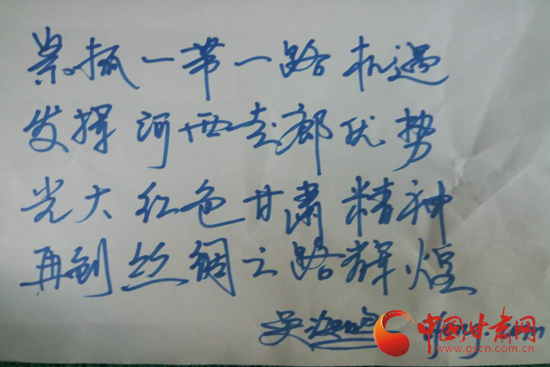 紧抓一带一路机遇
发挥河西走廊优势
光大红色甘肃精神
再创丝绸之路辉煌
中国甘肃网
www.gscn.com.cn